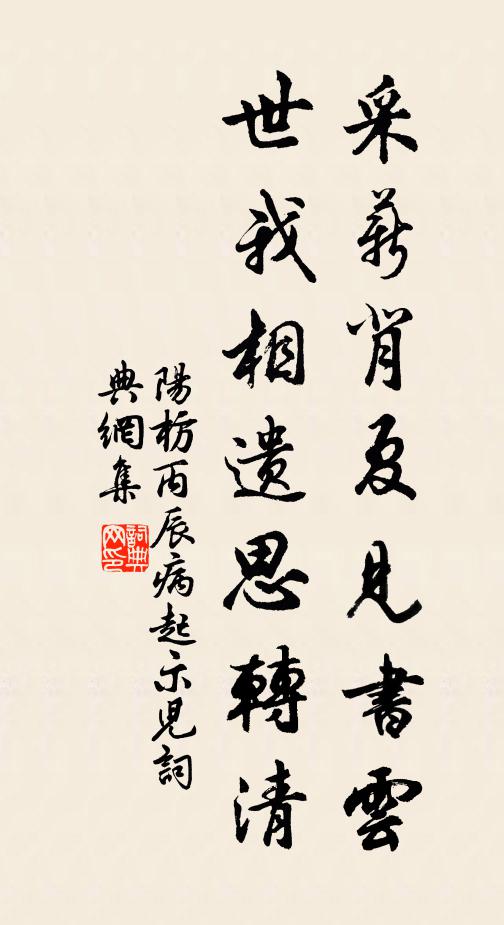 采薪背夏見書雲
世我相遺思轉清
陽枋丙辰病起示兒詞
典網集
詞典網印